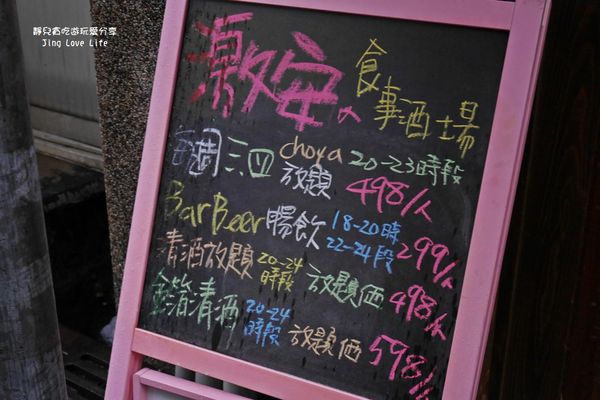 靜兒貪吃遊玩愛分享
Jing Love Life
激安 食事酒場
每週三四 choya 放題 20-23時段 498/人
Bar Beer 暢飲 18-20時 22-24段 299/人
清酒放題 20-24時段 放題価 498/人
金箔清酒 20-24時段 放題価 598/人